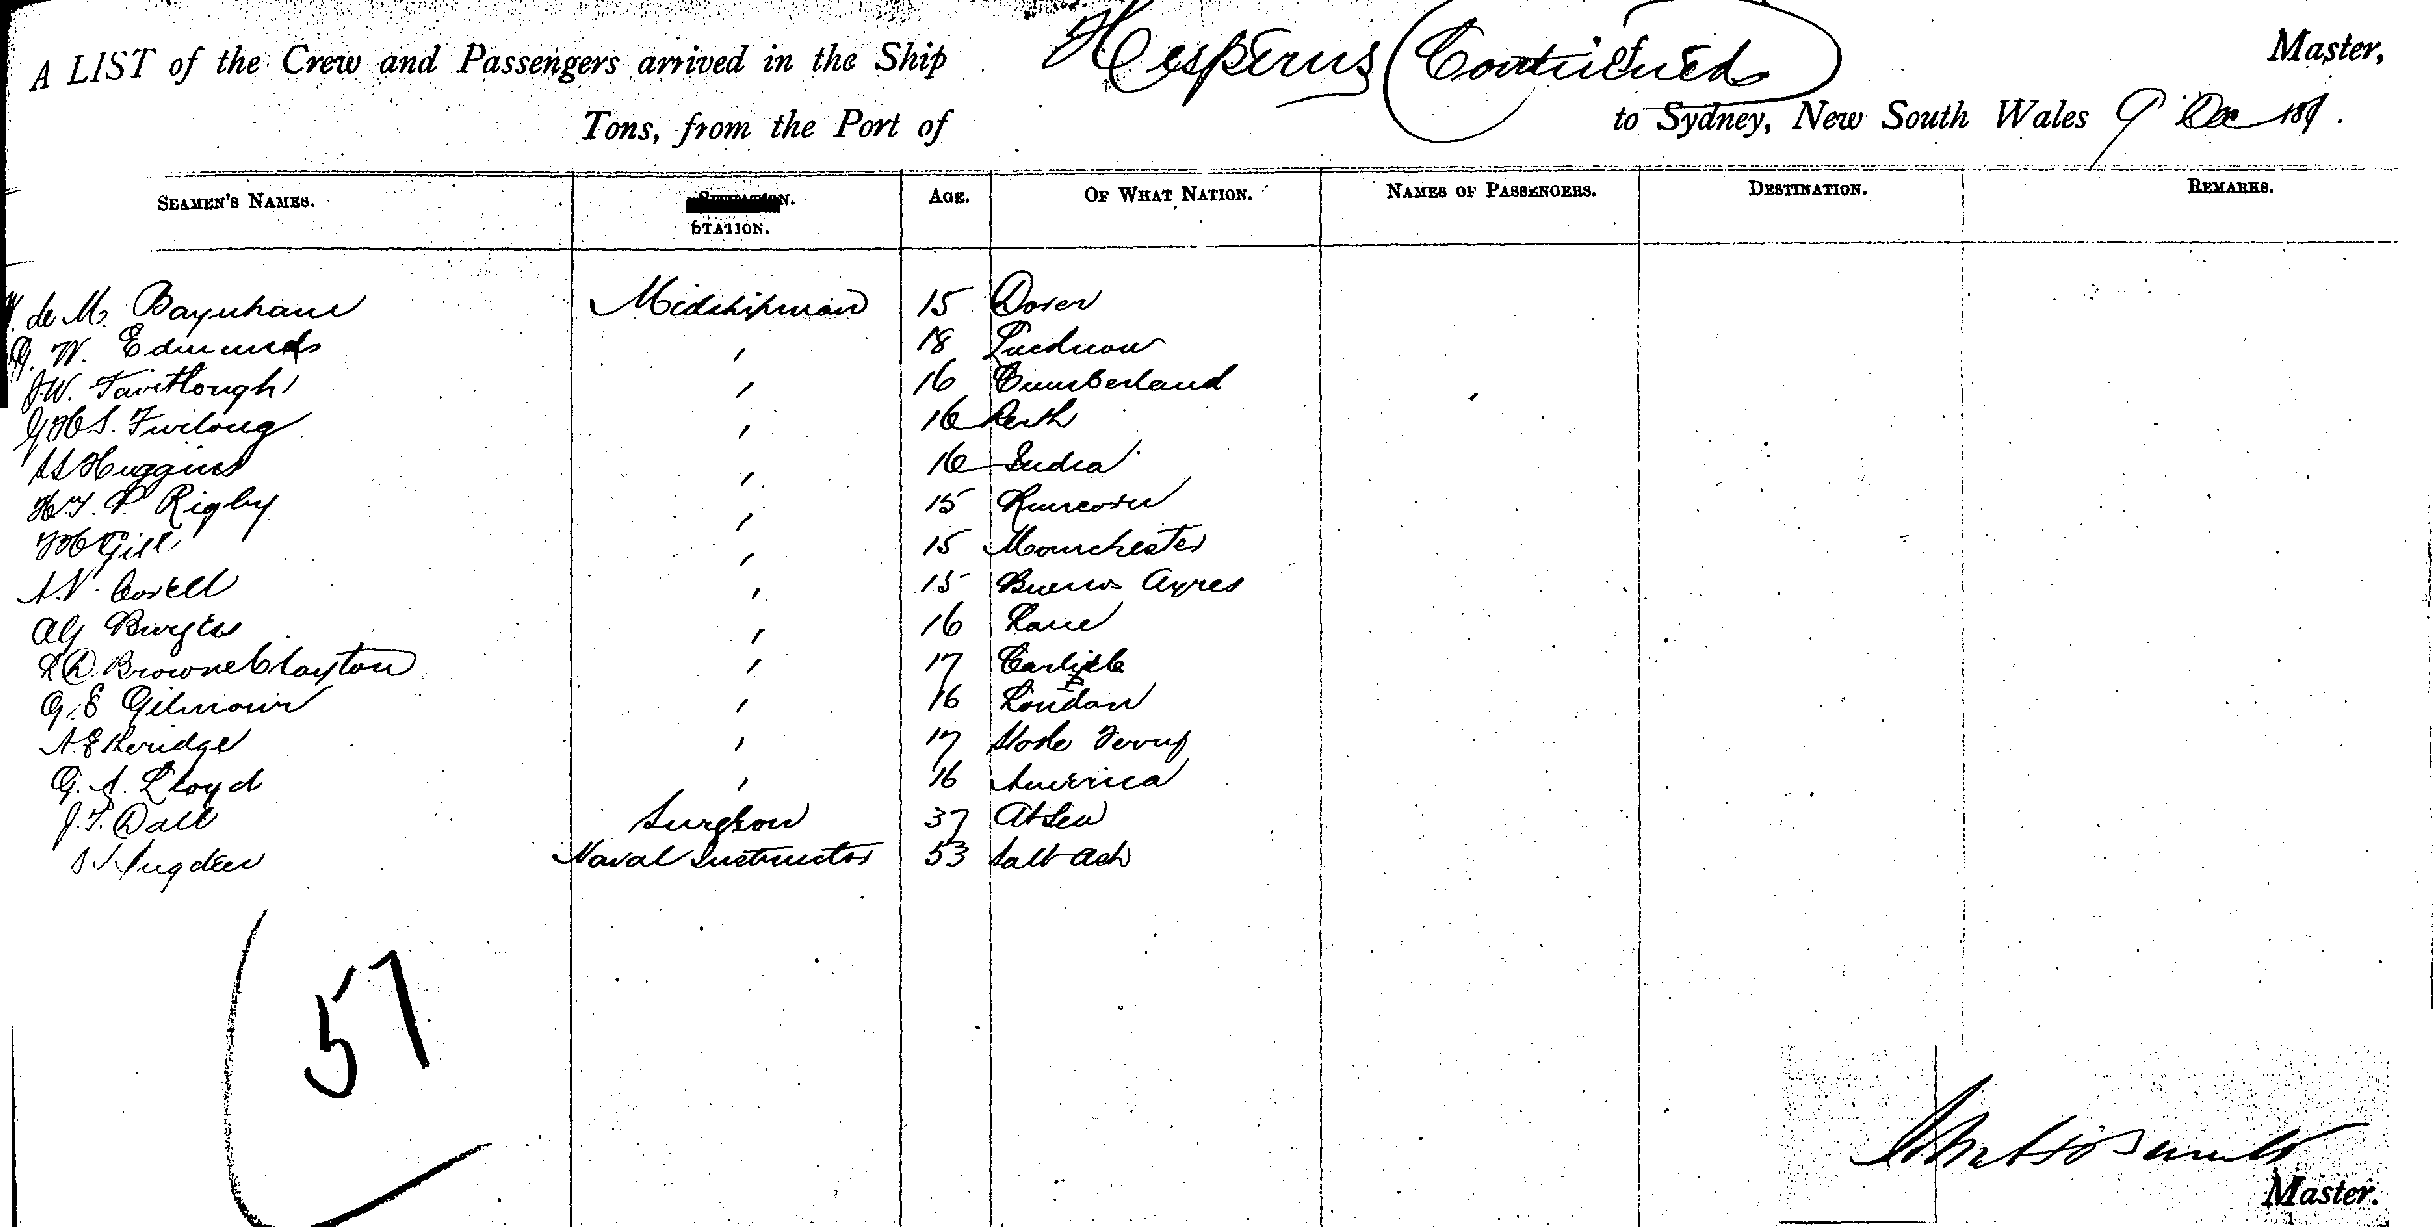 A LIST of the Crew and Passengers arrived in the Ship Hesperus (Continued) of Master,
Tons, from the Port of to Sydney, New South Wales 9 Dec 189
SEAMEN'S NAMES. SITUATION. STATION. AGE. OF WHAT NATION. NAMES OF PASSENGERS. DESTINATION. REMARKS.
de M. Baynham Midshipman 15 Dover
G. W. Edmunds " 18 Lucknow
J W. " 16 Cumberland
G H S. Furlong " 16 Perth
Huggins " 16 India
H T. P Rigby " 15 Runcorn
H Gill " 15 Manchester
A. V. Covell " 15 Buenos Ayres
A G Burgess " 16
R D. Browne Clayton " 17 Carlisle
G. E Gilmour " 16 London
A. E Keridge " 17 Stoke
G. A. Lloyd " 16 America
J. T. Dall Surgeon 37 At Sea
Naval Instructor 53 Salt Ash
57
Master.